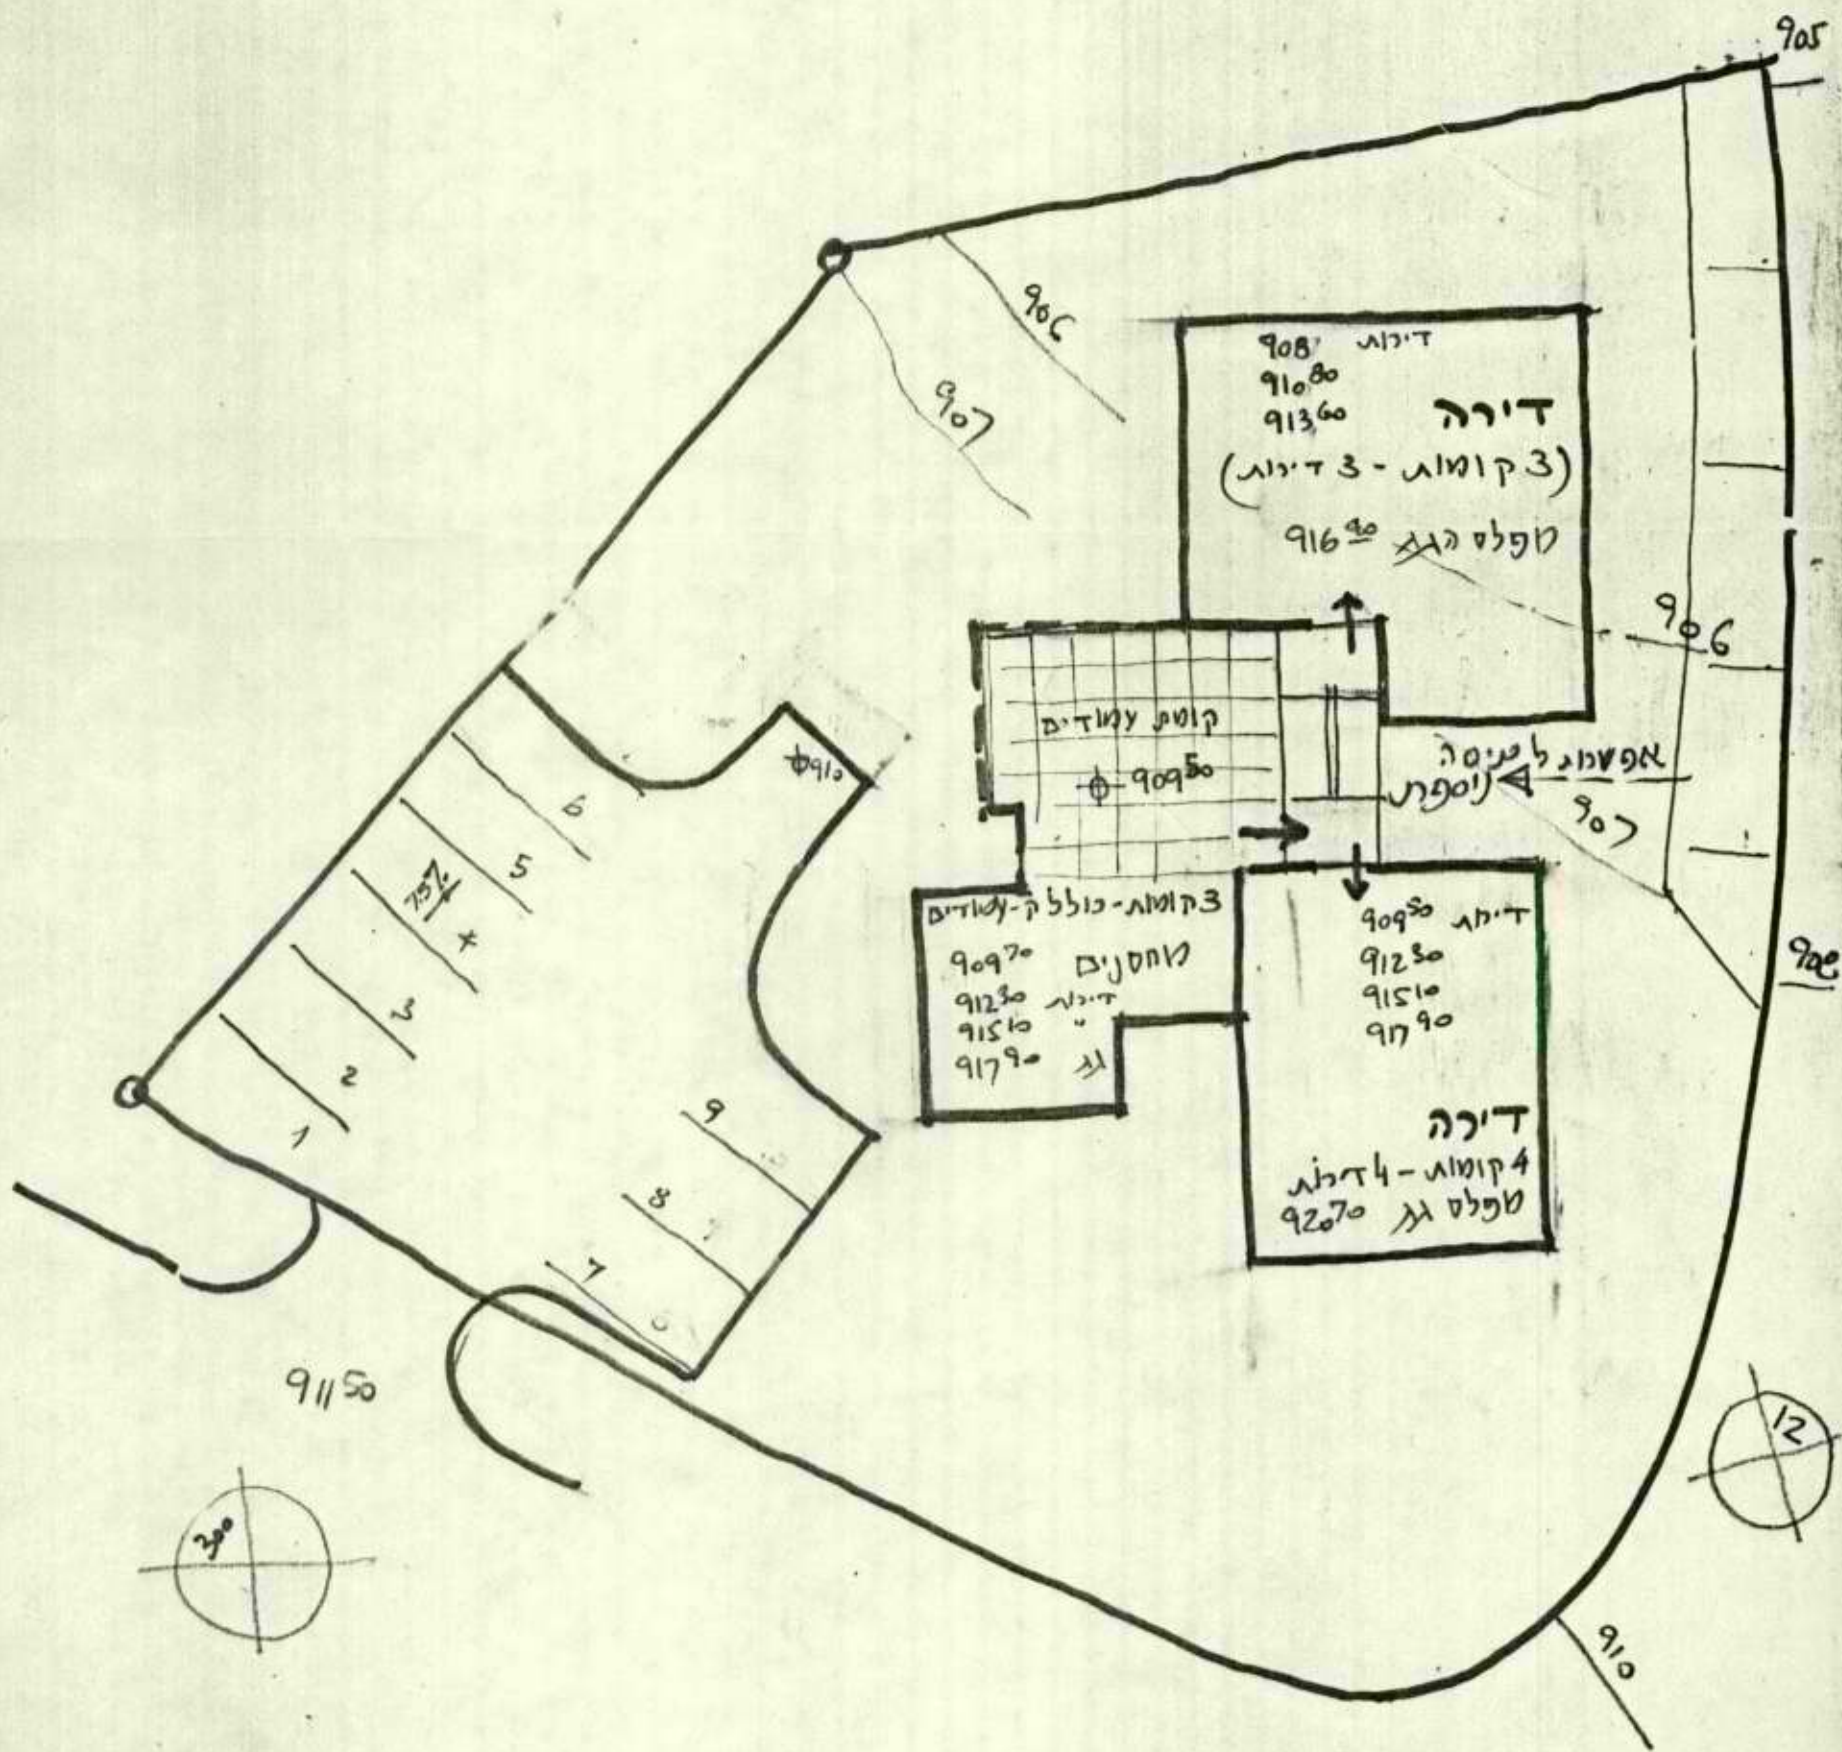 905
906
907
908 דירות
910.80
913.60
דירה
(3 קומות - 3 דירות)
מפלס הגג 916.40
906
קומת עמודים
909.50
אפשרות לכניסה
נוספת
907
908
910
6
5
7.5%
4
3
2
1
9
8
7
3 קומות - כולל ק-עמודים
מחסנים 909.70
דירות 912.30
" 915.10
גג 917.90
דירות 909.50
912.30
915.10
917.90
דירה
4 קומות - 4 דירות
מפלס גג 920.70
911.50
300
12
910